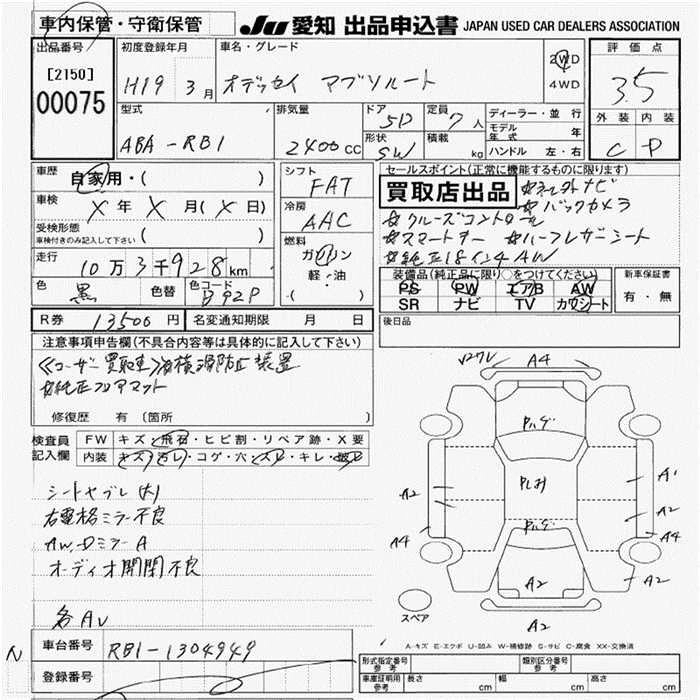 車内保管・守衛保管
JU 愛知 出品申込書 JAPAN USED CAR DEALERS ASSOCIATION
出品番号
[2150]
00075
初度登録年月
H19 3月
車名・グレード
オデッセイ アブソルート
2WD
4WD
評価点
3.5
外装 内装
C D
型式
ABA-RB1
排気量
2400cc
ドア 5D
形状 SW
定員 7人
積載 kg
ディーラー・並行
モデル年式 年
ハンドル 左・右
車歴 自家用・( )
車検 X年X月(X日)
受検形態
車検付きのみ記入して下さい ( )
走行
10万3千928km
色 黒 色替 色コード B92P
シフト
FAT
冷房
AAC
燃料
ガソリン
軽・油
・( )
セールスポイント(正常に機能するものに限ります)
買取店出品
☆バックカメラ
☆クルーズコントロール
☆スマートキー ☆ハーフレザーシート
☆純正18インチAW
装備品(純正品に限り○をつけてください)
PS PW エアB AW
SR ナビ TV カワシート
新車保証書
有・無
R券 13500円 名変通知期限 月 日
後日品
注意事項申告欄(不具合内容等は具体的に記入して下さい)
《ユーザー買取車》☆横滑防止装置
☆純正フロアマット
修復歴 有 (箇所 )
検査員記入欄
FW キズ・飛石・ヒビ割・リペア跡・X要
内装 キズ・汚レ・コゲ・穴・スレ・キレ・破レ
シートヤブレ(大)
右電格ミラー不良
AW、Dミラー A
オーディオ開閉不良
各AU
A4
A2
A4
A1
A2
A4
A2
A2
A2
スペア
A-キズ E-エクボ U-凹み W-補修跡 S-サビ C-腐食 XX-交換済
車台番号 RB1-1304949
登録番号
N
形式指定番号 参考
類別区分番号 参考
車庫証明用 参考 長さ cm 幅 cm 高さ cm